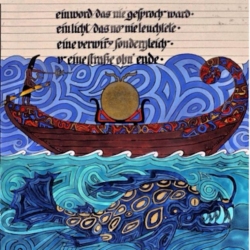 ein word · das nie gesproch ward ·
ein licht · das no nie leuchtete ·
eine verwirr · sondergleich ·
eine straße ohn' ende ·